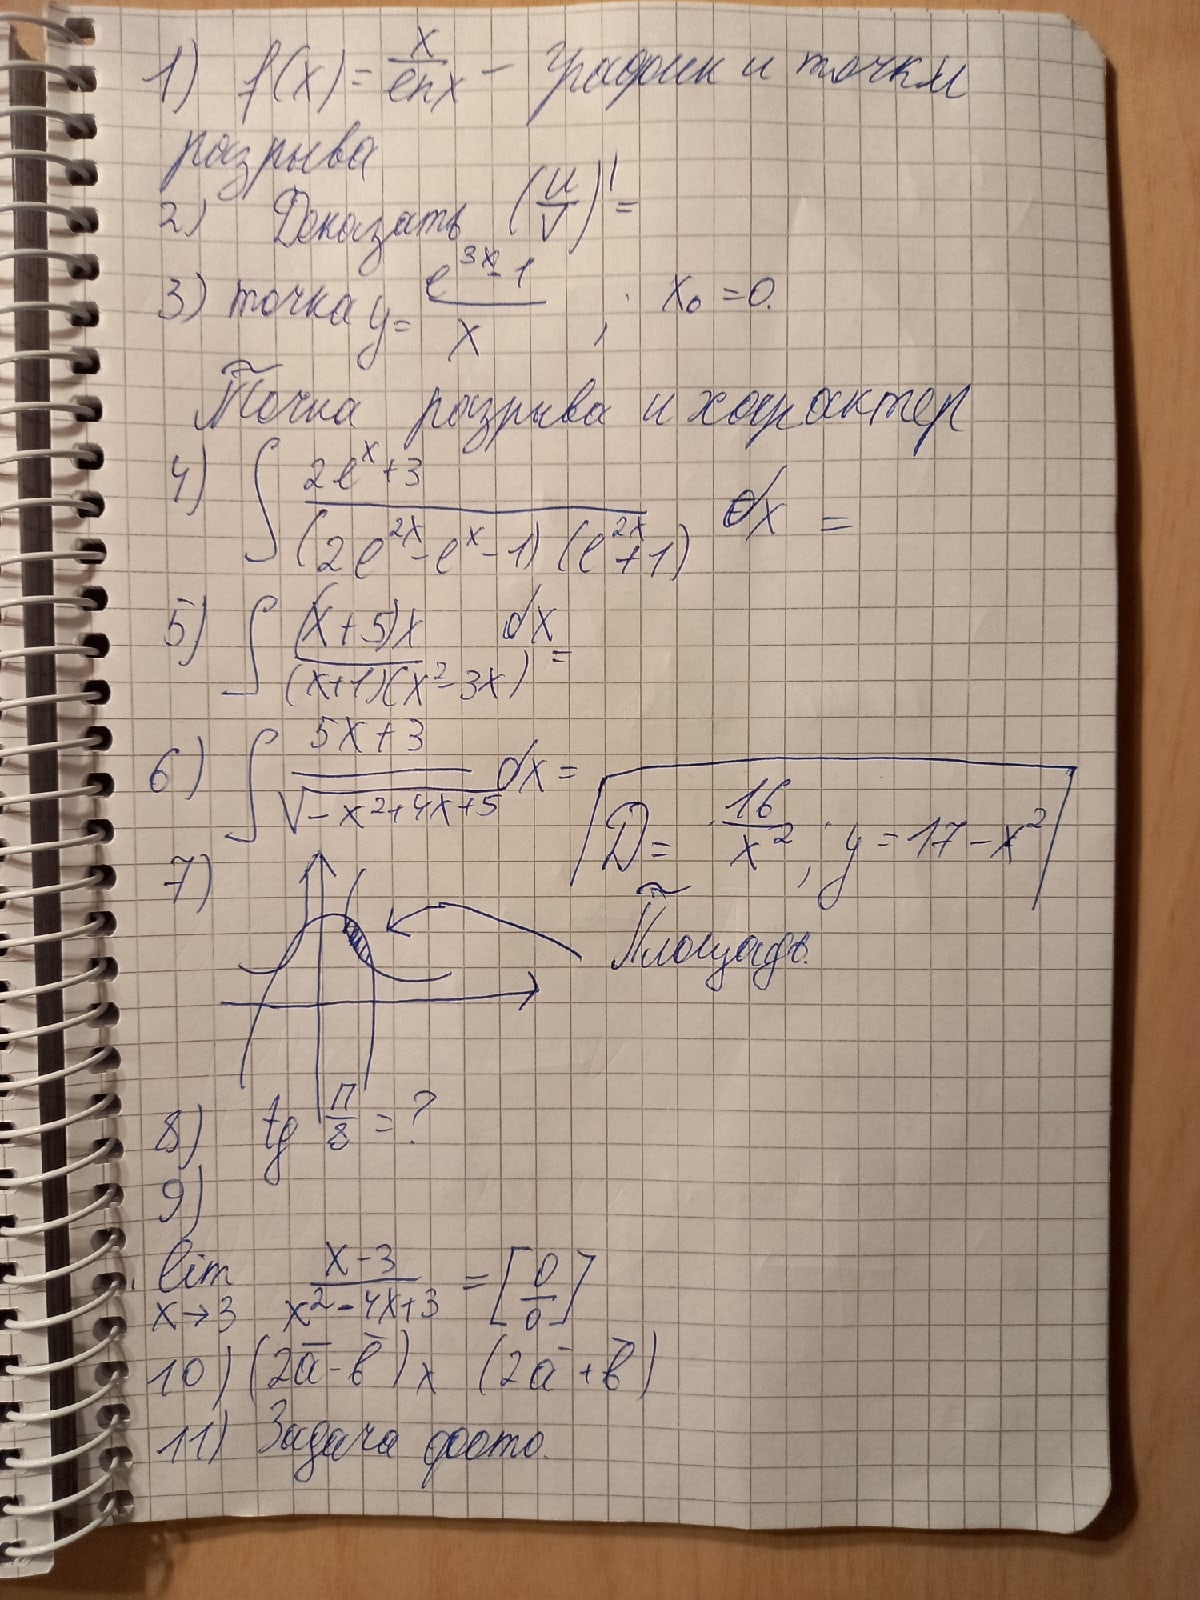 1) f(x) = x/ln x – график и точки
разрыва
2) Доказать (u/v)' =
3) точка y = (e^(3x) - 1)/x ; x₀ = 0.
Точка разрыва и характер
4) ∫ (2e^x + 3)/((2e^(2x) - e^x - 1)(e^(2x) + 1)) dx =
5) ∫ (x+5)x/((x+1)(x² - 3x)) dx =
6) ∫ (5x+3)/√(-x²+4x+5) dx =
D = 16/x² ; y = 17 - x²
7)
Площадь.
8) tg π/8 = ?
9)
lim x→3 (x-3)/(x²-4x+3) = [0/0]
10) (2a̅ - b̅) x (2a̅ + b̅)
11) Задача фото.